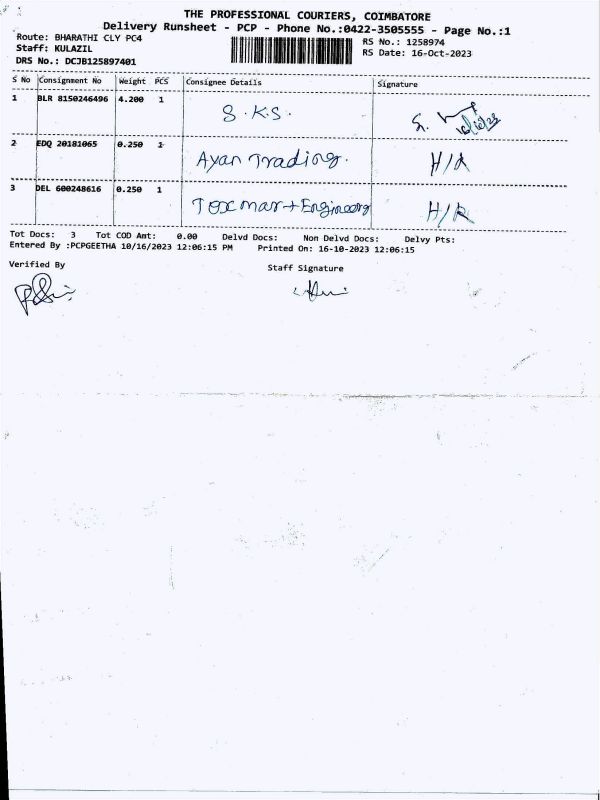 THE PROFESSIONAL COURIERS, COIMBATORE
Delivery Runsheet - PCP - Phone No.:0422-3505555 - Page No.:1
Route: BHARATHI CLY PC4
RS No.: 1258974
Staff: KULAZIL
RS Date: 16-Oct-2023
DRS No.: DCJB125897401
S No Consignment No Weight PCS Consignee Details Signature
1 BLR 8150246496 4.200 1 S.K.S. 16/10/23
2 EDQ 20181065 0.250 1 Ayan Trading.
3 DEL 600248616 0.250 1 Texmart Engineering
Tot Docs: 3 Tot COD Amt: 0.00 Delvd Docs: Non Delvd Docs: Delvy Pts:
Entered By :PCPGEETHA 10/16/2023 12:06:15 PM Printed On: 16-10-2023 12:06:15
Verified By
Staff Signature